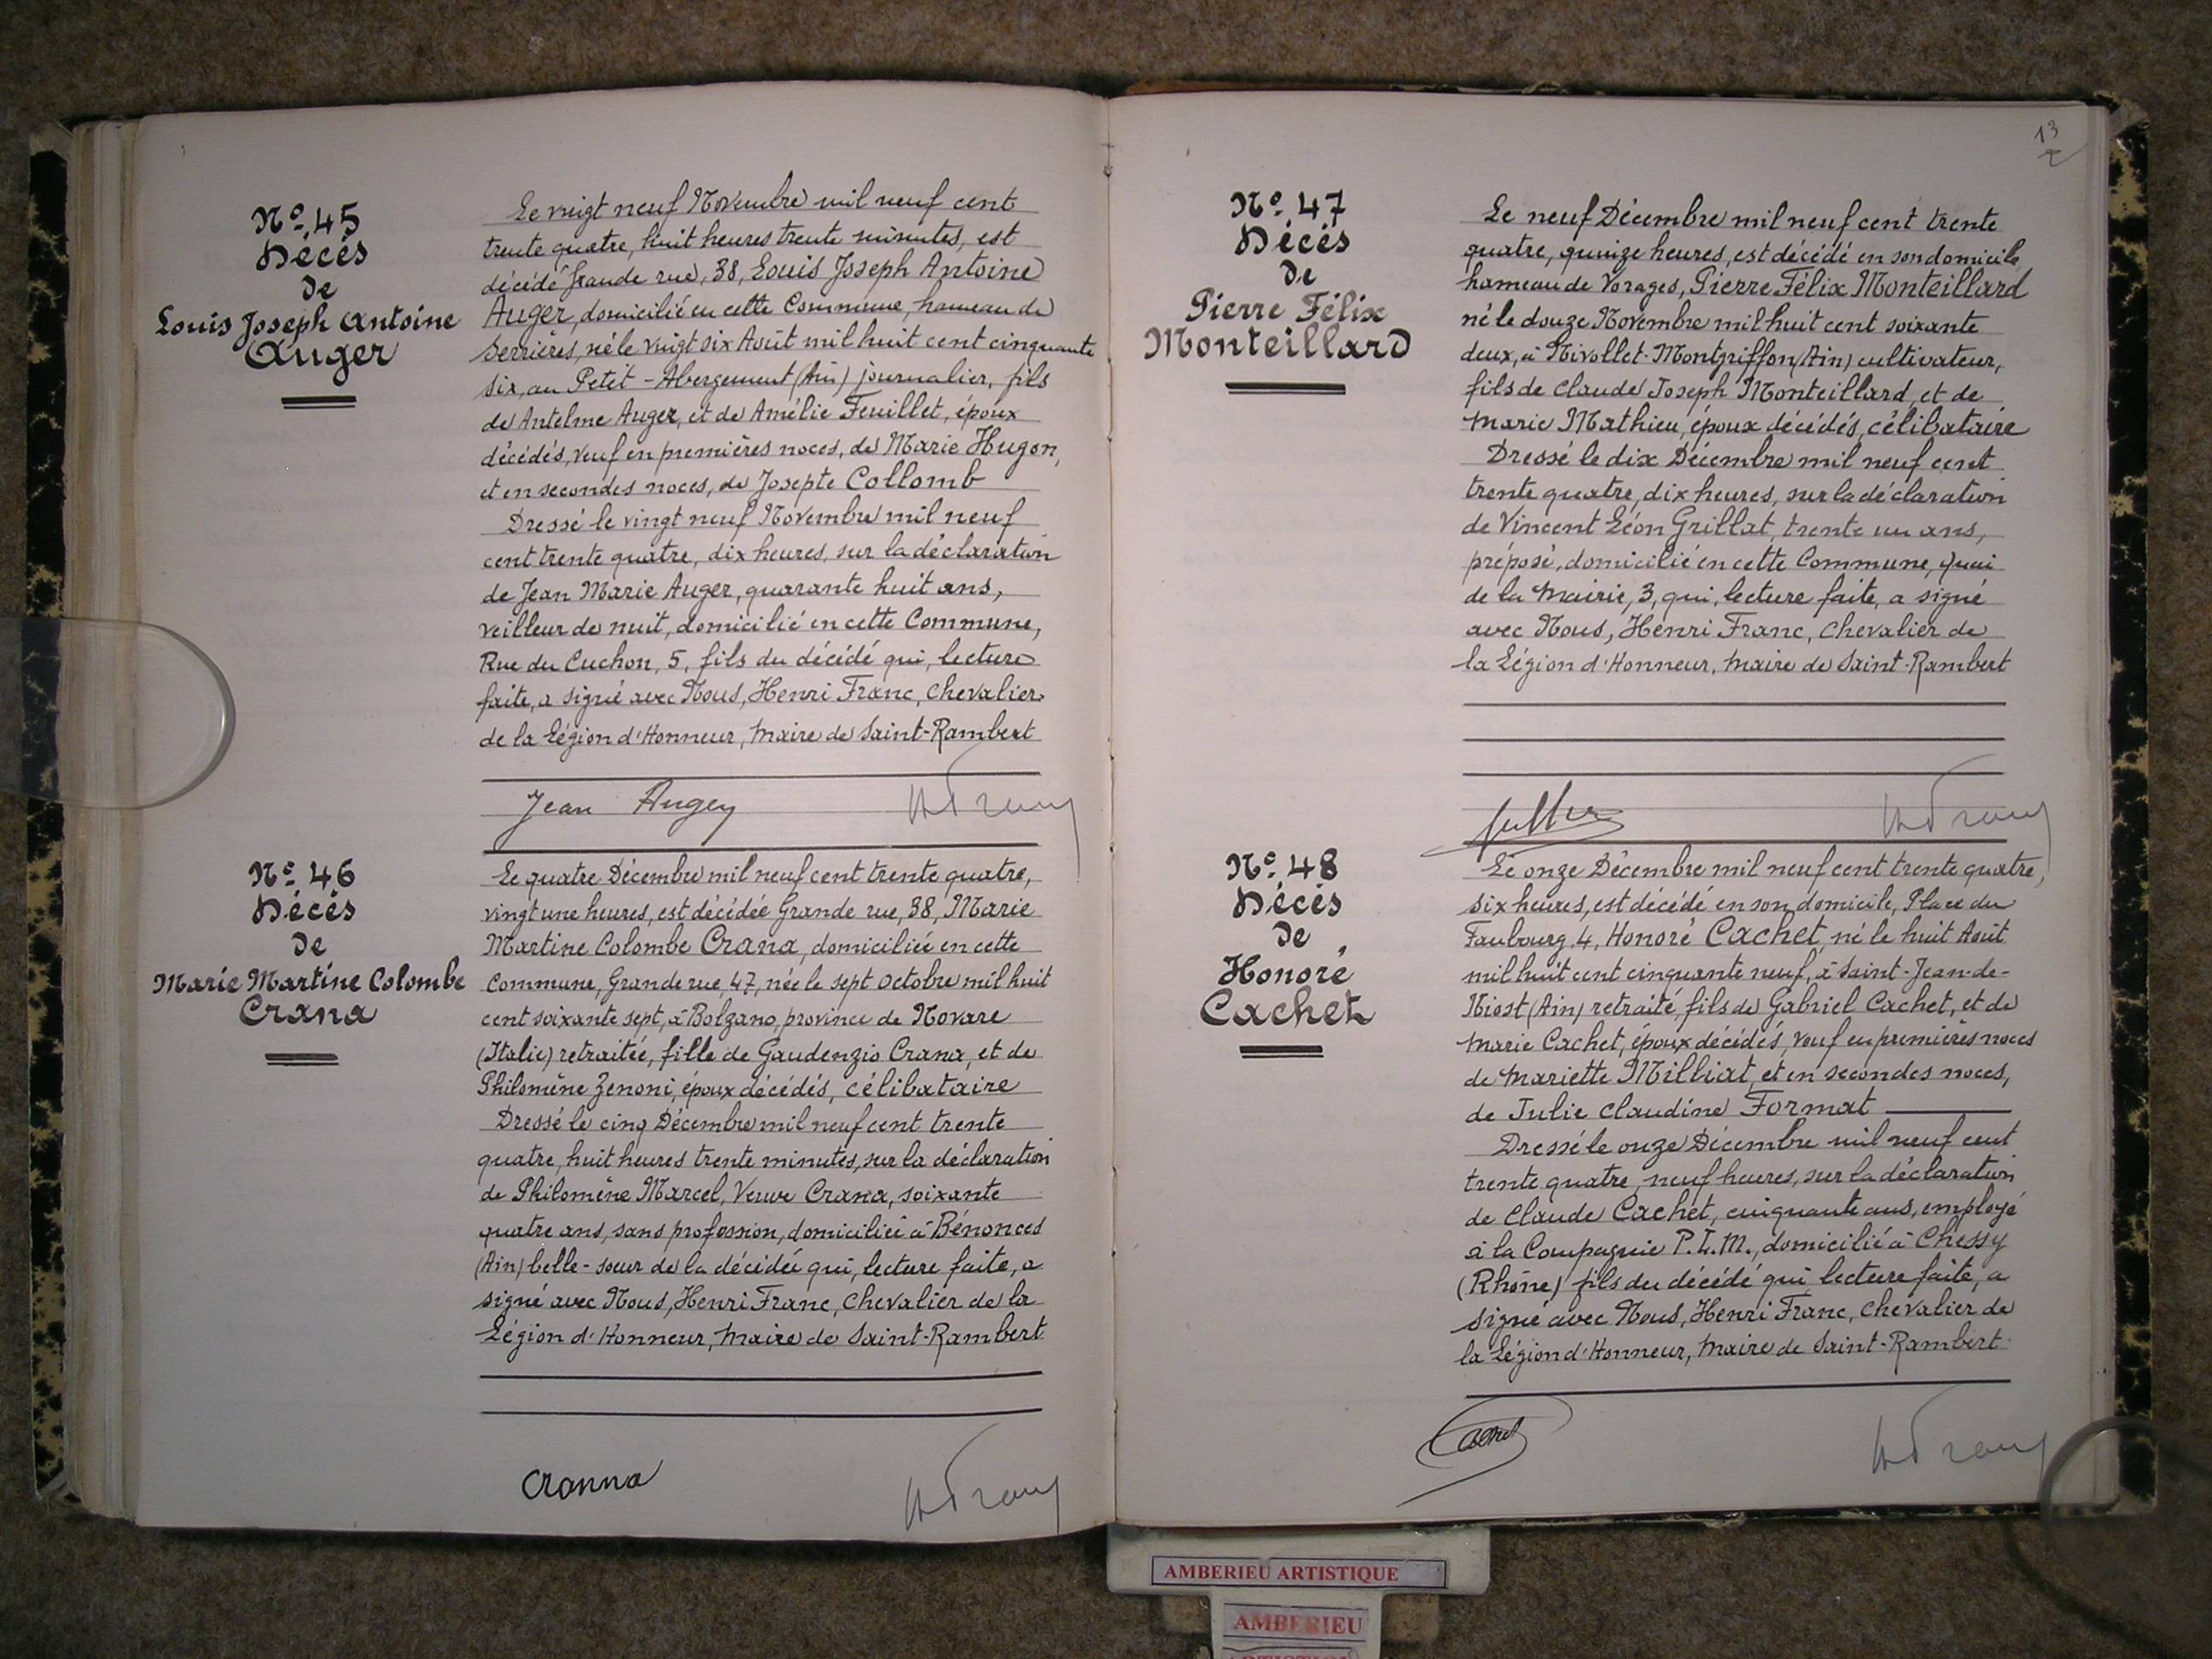 13
N° 45
Décès
de
Louis Joseph Antoine
Auger
Le vingt neuf Novembre mil neuf cent
trente quatre, huit heures trente minutes, est
décédé Grande rue, 38, Louis Joseph Antoine
Auger, domicilié en cette Commune, hameau de
Serrières, né le vingt six Août mil huit cent cinquante
six, au Petit-Abergement (Ain) journalier, fils
de Antelme Auger, et de Amélie Feuillet, époux
décédés, veuf en premières noces, de Marie Hugon,
et en secondes noces, de Josepte Collomb
Dressé le vingt neuf Novembre mil neuf
cent trente quatre, dix heures, sur la déclaration
de Jean Marie Auger, quarante huit ans,
veilleur de nuit, domicilié en cette Commune,
Rue du Cuchon, 5, fils du décédé qui, lecture
faite, a signé avec Nous, Henri Franc, Chevalier
de la Légion d'Honneur, Maire de Saint-Rambert
Jean Auger
N° 46
Décès
de
Marie Martine Colombe
Crana
Le quatre Décembre mil neuf cent trente quatre,
vingt une heures, est décédée Grande rue, 38, Marie
Martine Colombe Crana, domiciliée en cette
Commune, Grande rue, 47, née le sept Octobre mil huit
cent soixante sept, à Bolzano, province de Novare
(Italie) retraitée, fille de Gaudenzio Crana, et de
Philomène Zenoni, époux décédés, célibataire
Dressé le cinq Décembre mil neuf cent trente
quatre, huit heures trente minutes, sur la déclaration
de Philomène Marcel, Veuve Crana, soixante
quatre ans, sans profession, domiciliée à Bénonces
(Ain) belle-sœur de la décédée qui, lecture faite, a
signé avec Nous, Henri Franc, Chevalier de la
Légion d'Honneur, Maire de Saint-Rambert
Cranna
N° 47
Décès
de
Pierre Félix
Monteillard
Le neuf Décembre mil neuf cent trente
quatre, quinze heures, est décédé en son domicile
hameau de Vorages, Pierre Félix Monteillard
né le douze Novembre mil huit cent soixante
deux, à Nivollet-Montgriffon (Ain) cultivateur,
fils de Claude Joseph Monteillard, et de
Marie Mathieu, époux décédés, célibataire
Dressé le dix Décembre mil neuf cent
trente quatre, dix heures, sur la déclaration
de Vincent Léon Grillat, trente un ans,
préposé, domicilié en cette Commune, Quai
de la Mairie, 3, qui, lecture faite, a signé
avec Nous, Henri Franc, Chevalier de
la Légion d'Honneur, Maire de Saint-Rambert
N° 48
Décès
de
Honoré
Cachet
Le onze Décembre mil neuf cent trente quatre,
six heures, est décédé en son domicile, Place du
Faubourg, 4, Honoré Cachet, né le huit Août
mil huit cent cinquante neuf, à Saint-Jean-de-
Niost (Ain) retraité, fils de Gabriel Cachet, et de
Marie Cachet, époux décédés, veuf en premières noces
de Mariette Milliat, et en secondes noces,
de Julie Claudine Format
Dressé le onze Décembre mil neuf cent
trente quatre, neuf heures, sur la déclaration
de Claude Cachet, cinquante ans, employé
à la Compagnie P.L.M., domicilié à Chessy
(Rhône) fils du décédé qui lecture faite, a
signé avec Nous, Henri Franc, Chevalier de
la Légion d'Honneur, Maire de Saint-Rambert
Cachet
AMBERIEU ARTISTIQUE
AMBERIEU
ARTISTIQUE